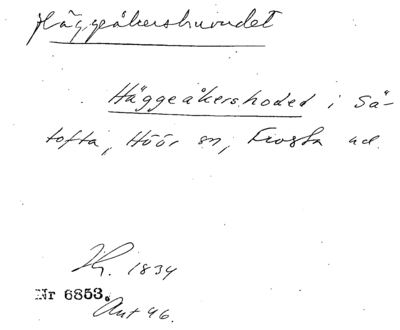 Häggeåkershuvudet
Häggeåkershoded i Sä-
tofta, Höör sn, Frosta hd
1834
Nr 6853.
Ant 46.